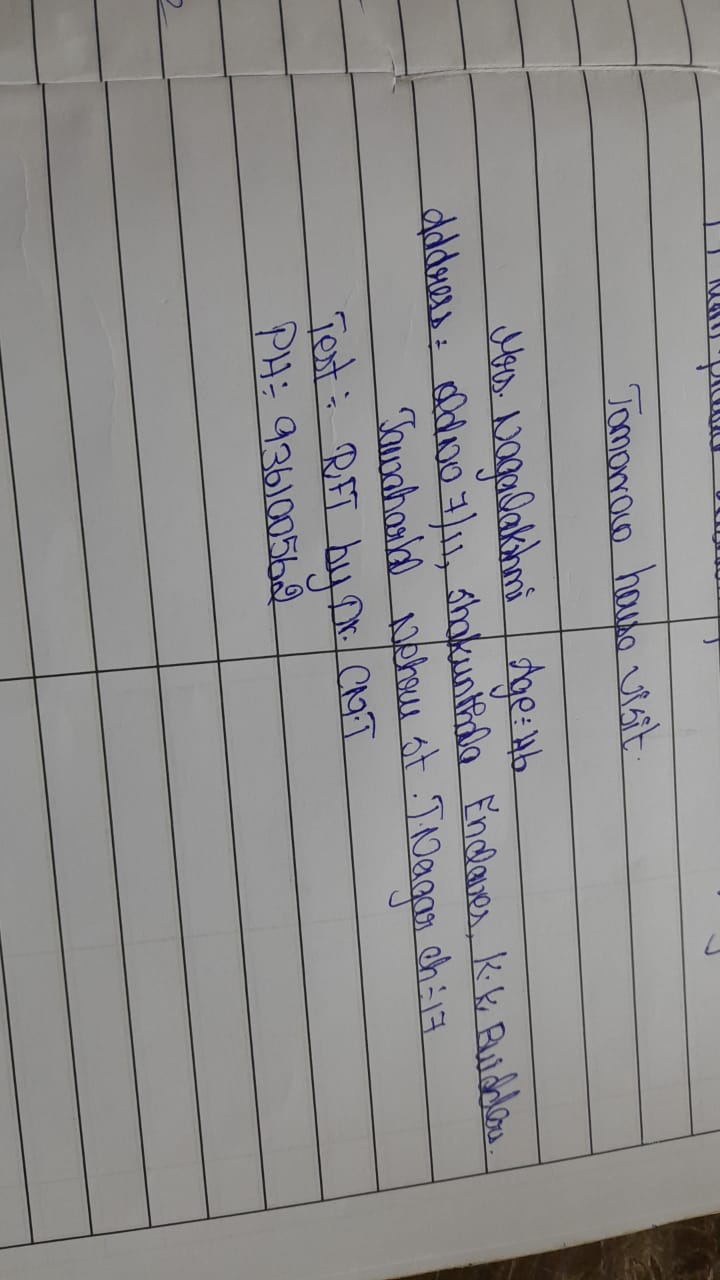 Tomorrow house visit.
Mrs. Nagalakshmi Age = 46
address = Old no 7/11, Shakunthala Enclaves, K.K Buildders.
Jawaharlal Nehru st. T.Nagar ch = 17
Test = RFT by Dr. CMT
PH = 936100562